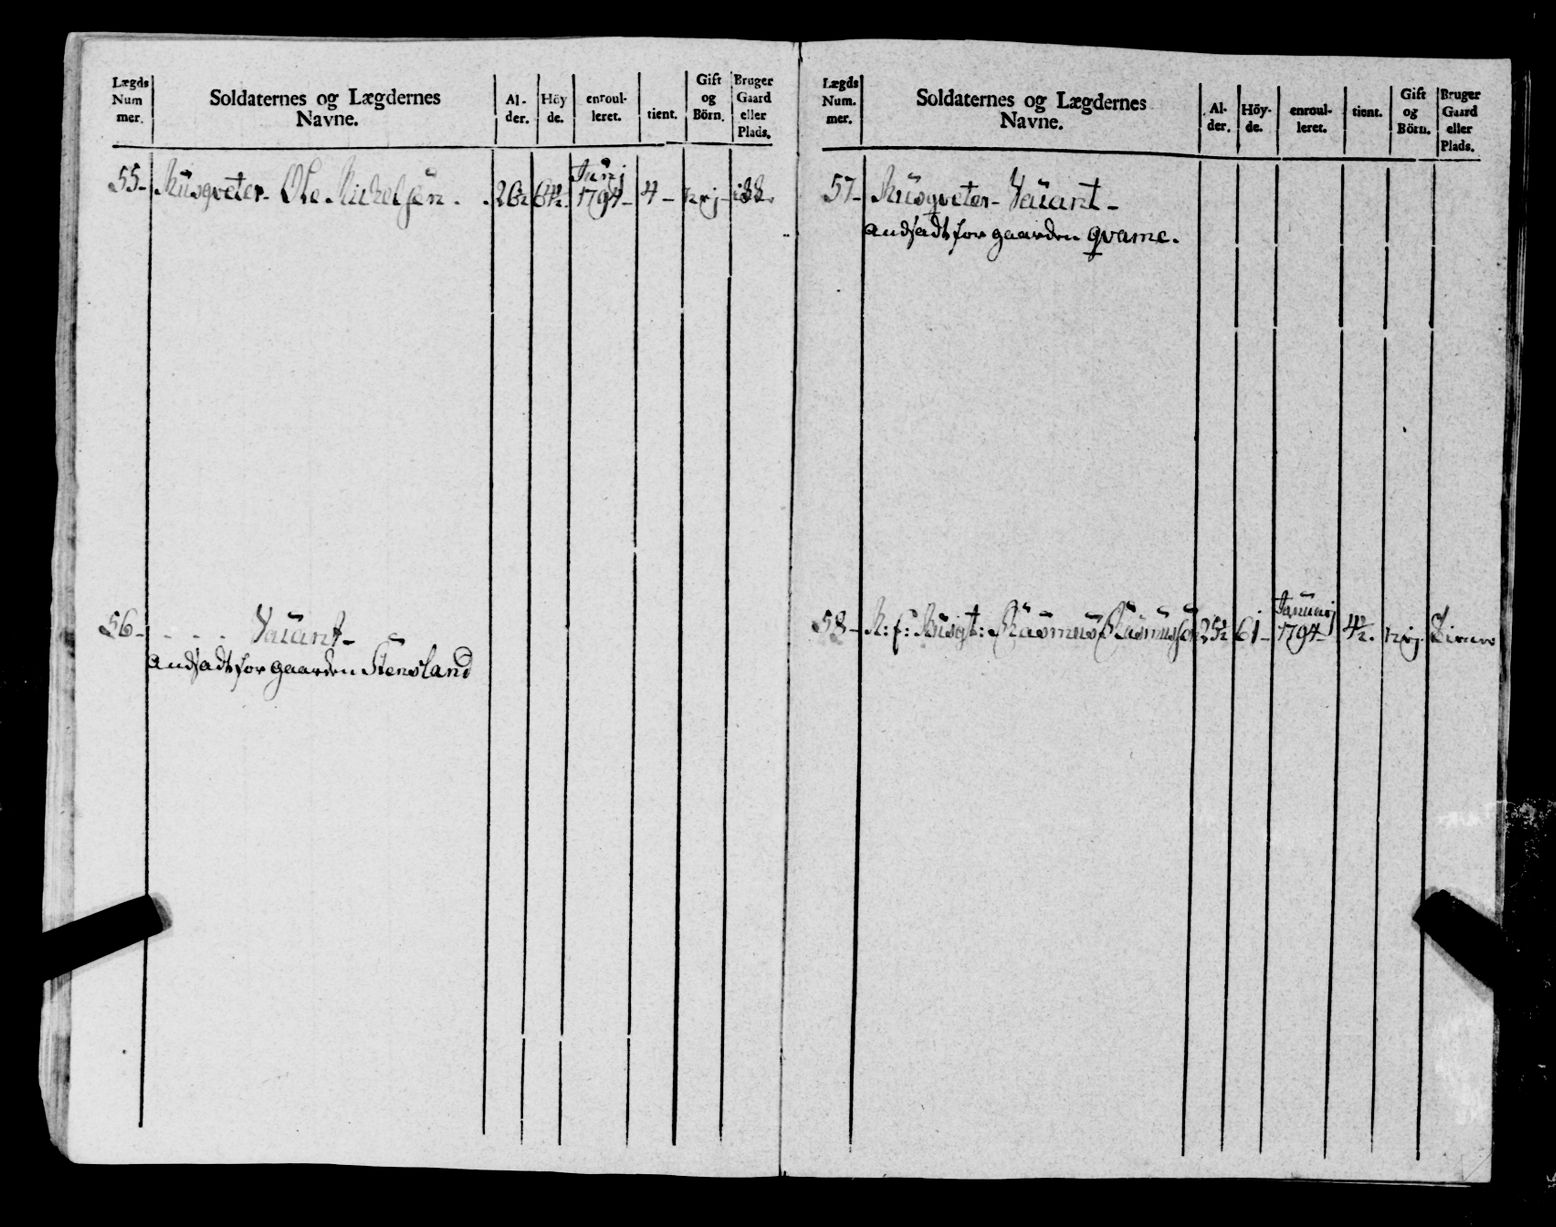 Lægds Num mer.
Soldaternes og Lægdernes Navne.
Al- der.
Höy de.
enroul- leret.
tient.
Gift og Börn.
Bruger Gaard eller Plads.
55- Musqveter- Ole Michelsen. 26 Junj 1794- 4- nej-
56- Vacant-
andsadt for gaarden Stensland
Lægds Num. mer.
Soldaternes og Lægdernes Navne.
Al- der.
Höy- de.
enroul- leret.
tient.
Gift og Börn.
Bruger Gaard eller Plads.
57- Musqveter- Vacant-
andsadt for gaarden qvame.
58- Musqt: Rasmus Rasmussen 25½ 61- Januarj 1794- 4½. nej.